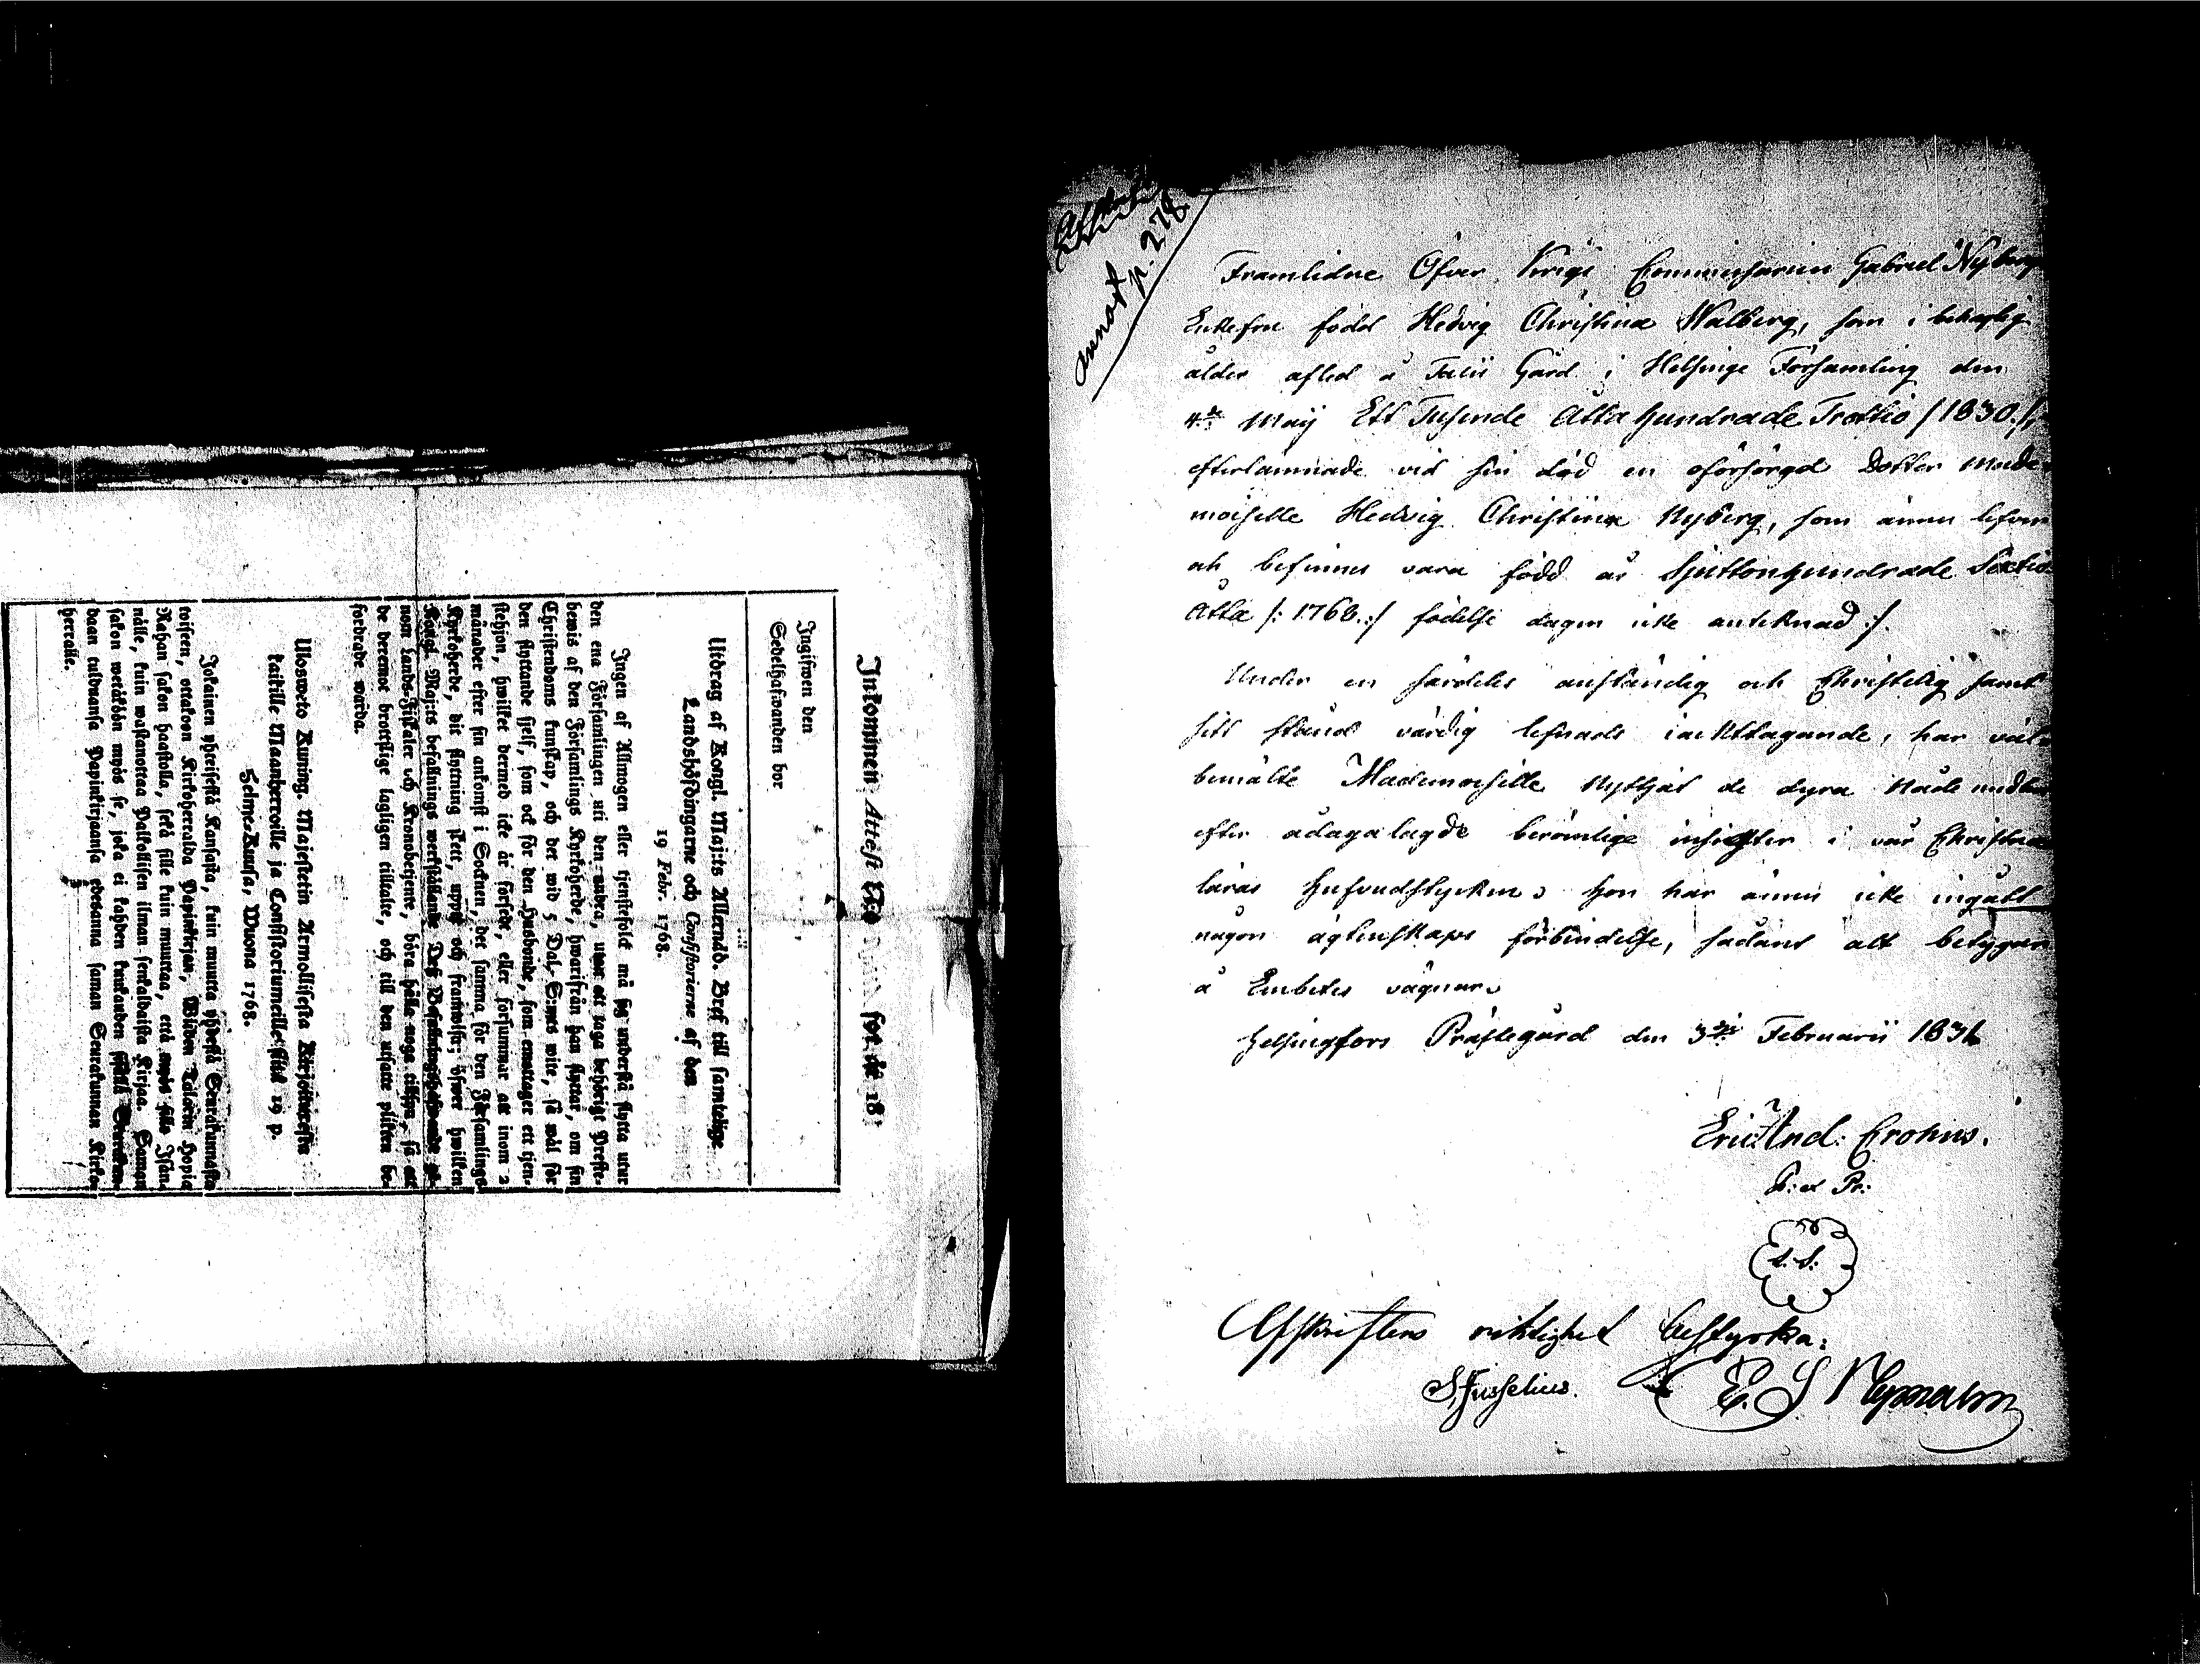 Inkommen Attest N:o för år 18
Ingifwen den
Sedelhafwanden bor
Utdrag af Kongl. Maj:ts Allernåd. Bref till samtelige
Landshöfdingarne och Consistorierne af den
19 Febr. 1768.
Ingen af Allmogen eller tjenstefolck må sig understå flytta utur
den ena Församlingen uti den andra, utan att taga behörigt Preste-
bewis af den Församlings Kyrkoherde, hwarifrån han flyttar, om sin
Christendoms kunskap, och det wid 5 Dal. S:mts wite, så wäl för
den flyttande sjelf, som ock för den Husbonde, som emottager ett tjen-
stehjon, hwilket dermed icke är försedt, eller försummar att inom 2
månader efter sin ankomst i Socknen, det samma för den Församlings
Kyrkoherde, dit flyttning skett, uppte och framwisa; öfwer hwilken
Kongl. Maj:ts befallnings werkställande Deß Befallningshafwande ge-
nom Lands-Fiskaler och Kronobetjente, böra hålla noga tillsyn, så att
de deremot brottslige lagligen tilltalte, och till den utsatte plikten be-
fordrade warda.
Ulosweto Kuning. Majestetin Armollisesta Kirjoituxesta
kaikille Maanherroille ja Consistoriumeille, sinä 19 p.
Helme-Kuusa, Wuona 1768.
Jokainen yhteisestä Kansasta, kuin muutta yhdestä Seurakunnasta
toiseen, ottakoon Kirkoherralda Papinkirjan, Wiiden Talarin Hopia
Rahan sakon haastolla, sekä sille kuin muuttaa, että myös sille Isän-
nälle, kuin wastanottaa Palkollisen ilman senkaldaista Kirjaa. Saman
sakon wetäkään myös se, joka ei kahden kuukauden sisällä Seurakun-
daan tulduansa Papinkirjaansa edesanna saman Seurakunnan Kirko-
herralle.
annot p. 278
Framlidne Öfver Krigs Commissarien Gabriel Nybergs
Enkefru född Hedvig Christina Walberg, som i behaglig
ålder afled å Talis Gård i Helsinge Församling den
4:de Maij Ett Tusende Åtta Hundrade Trettio /1830./,
efterlämnade vid sin död en oförsörgd Dotter Made-
moiselle Hedvig Christina Nyberg, som ännu lefver
och befinnes vara född år Sjuttonhundrade Sextio
Åtta /: 1768.:/ födelse dagen icke anteknad :/.
Under en särdeles anständig och Christelig samt
sitt stånd värdig lefnads iakttagande, har väl-
bemälte Mademoiselle nyttjat de dyra Nåde medlen
efter ådagalagde berömlige insigter i vår Christna
läras Hufvudstycken. Hon har ännu icke ingått
någon ägtenskaps förbindelse, sådant alt betygar
å Embetes vägnar.
Helsingfors Prästegård den 3:dje Februarii 1831
Eric And: Crohns.
P: et Pr:
L.S.
Afskriftens riktighet bestyrka:
S. Jusselius. E. S Nyman